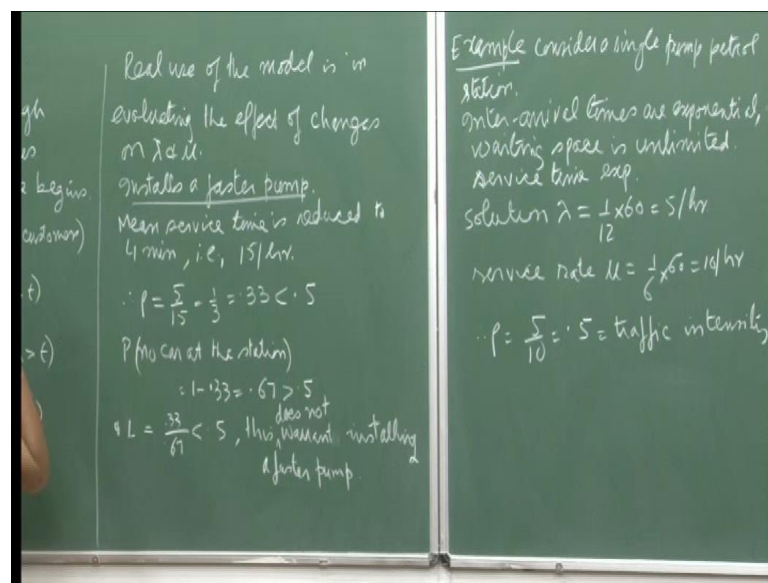 gh
es
e begins.
customer)
t)
> t)
)
Real use of the model is in
evaluating the effect of changes
in λ & μ.
Installs a faster pump.
Mean service time is reduced to
4 min, i.e., 15/hr.
∴ ρ = 5/15 = 1/3 = .33 < .5
P(no car at the station)
= 1-.33 = .67 > .5
& L = .33/.67 < .5, this does not warrant installing
a faster pump.
Example consider a single pump petrol
station.
Inter-arrival times are exponential,
waiting space is unlimited.
service time exp.
solution λ = 1/12 x 60 = 5/hr
service rate μ = 1/6 x 60 = 10/hr
∴ ρ = 5/10 = .5 = traffic intensity